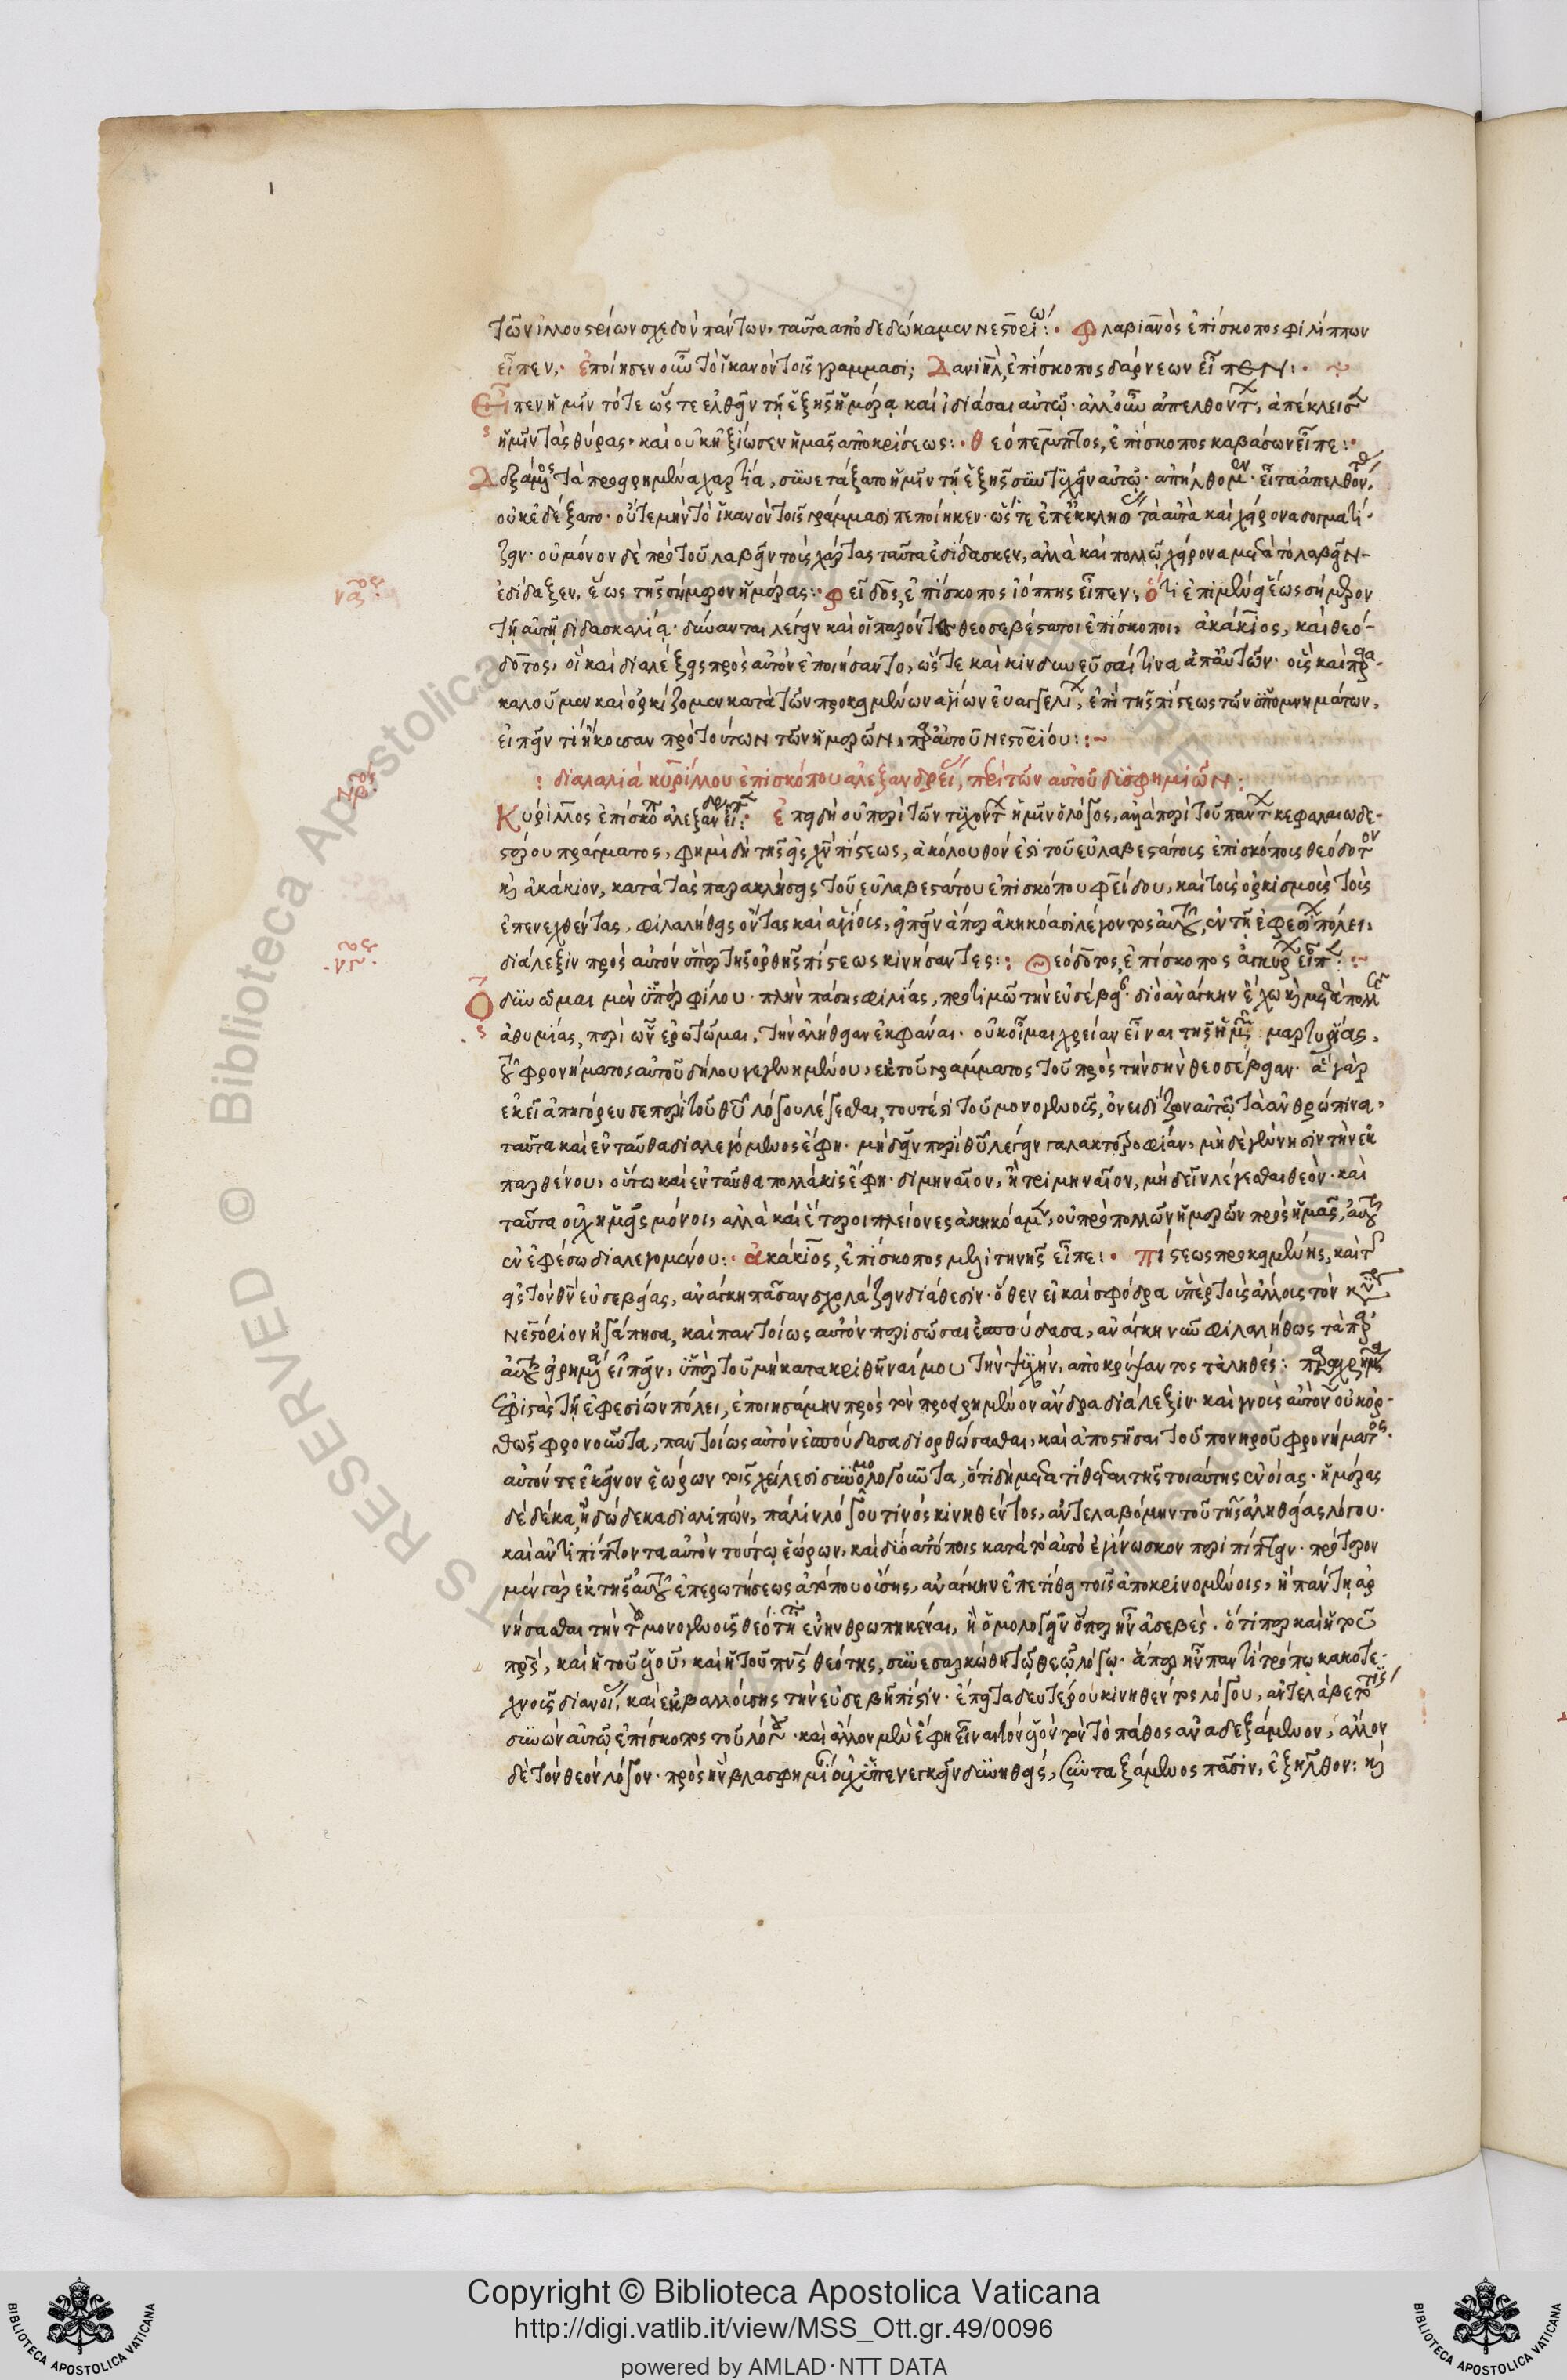 τῶν ἰλλουστρίων σχεδὸν πάντων, ταῦτα ἀποδεδώκαμεν νεστορίω: Φλαβιανὸς ἐπίσκοπος φιλίππων
εἶπεν· ἐποίησεν οὖν τὸ ἱκανὸν τοῖς γράμμασι; Δανιὴλ, ἐπίσκοπος δάρνεων εἶπεν:
Εἶπεν ἡμῖν τότε ὥστε ἐλθεῖν τῇ ἑξῆς ἡμέρᾳ καὶ ἰδιάσαι αὐτῷ· ἀλλ' οὖν ἀπελθόντων, ἀπέκλεισεν
ἡμῖν τὰς θύρας· καὶ οὐκ ἠξίωσεν ἡμᾶς ἀποκρίσεως: θεόπεμπτος, ἐπίσκοπος καβάσων εἶπε:
Δεξάμενος τὰ προειρημένα χαρτία, συνετάξατο ἡμῖν τῇ ἑξῆς συντυχεῖν αὐτῷ· ἀπήλθομεν· εἶτα ἀπελθόντας,
οὐκ ἐδέξατο· οὔτε μὴν τὸ ἱκανὸν τοῖς γράμμασι πεποίηκεν· ὥστε ἐπ' ἐκκλησίας τὰ αὐτὰ καὶ χείρονα δογματί-
ζειν· οὐ μόνον δὲ πρὸ τοῦ λαβεῖν τοὺς χάρτας ταῦτα ἐδίδασκεν, ἀλλὰ καὶ πολλῷ χείρονα μετὰ τὸ λαβεῖν
ἐδίδαξεν, ἕως τῆς σήμερον ἡμέρας: φεῖδος, ἐπίσκοπος ἰόππης εἶπεν, ὅτι ἐπιμένει ἕως σήμερον
τῇ αὐτῇ διδασκαλίᾳ· δύνανται λέγειν καὶ οἱ παρόντες θεοσεβέστατοι ἐπίσκοποι, ἀκάκιος, καὶ θεό-
δοτος, οἳ καὶ διαλέξεις πρὸς αὐτὸν ἐποιήσαντο, ὥστε καὶ κινδυνεῦσαί τινα ἀπ' αὐτῶν· οὓς καὶ παρα-
καλοῦμεν καὶ ὁρκίζομεν κατὰ τῶν προκειμένων ἁγίων εὐαγγελίων, ἐπὶ τῆς πίστεως τῶν ὑπομνημάτων,
εἰπεῖν τί ἤκουσαν πρὸ τούτων τῶν ἡμερῶν, παρ' αὐτοῦ νεστορίου:
διαλαλιὰ κυρίλλου ἐπισκόπου ἀλεξανδρείας, περὶ τῶν αὐτοῦ δισφημιῶν:
Κύριλλος ἐπίσκοπος ἀλεξανδρείας εἶπεν: ἐπειδὴ οὐ περὶ τῶν τυχόντων ἡμῖν ὁ λόγος, ἀλλὰ περὶ τοῦ πάντων κεφαλαιωδε-
στέρου πράγματος, φημὶ δὴ τῆς εἰς χν πίστεως, ἀκόλουθόν ἐστι τοὺς εὐλαβεστάτους ἐπισκόπους θεόδοτον
κὶ ἀκάκιον, κατὰ τὰς παρακλήσεις τοῦ εὐλαβεστάτου ἐπισκόπου φείδου, καὶ τοὺς ὁρκισμοὺς τοὺς
ἐπενεχθέντας, φιλαλήθεις ὄντας καὶ ἁγίους, εἰπεῖν ἅπερ ἀκηκόασι λέγοντος αὐτοῦ, ἐν τῇ ἐφεσίων πόλει,
διάλεξιν πρὸς αὐτὸν ὑπὲρ τῆς ὀρθῆς πίστεως κινήσαντες: Θεόδοτος, ἐπίσκοπος ἀγκύρων εἶπεν:
Ὀδυνῶμαι μὲν ὑπὲρ φίλου· πλὴν πάσης φιλίας, προτιμῶ τὴν εὐσέβειαν· διὸ ἀνάγκην ἔχω κὶ μετὰ πολλῆς
ἀθυμίας, περὶ ὧν ἐρωτῶμαι, τὴν ἀλήθειαν ἐκφᾶναι· οὐκ οἶμαι χρείαν εἶναι τῆς ἡμῶν μαρτυρίας,
τοῦ φρονήματος αὐτοῦ δήλου γεγενημένου, ἐκ τοῦ γράμματος τοῦ πρὸς τὴν σὴν θεοσέβειαν· ἃ γὰρ
ἐκεῖ ἀπηγόρευσε περὶ τοῦ θῦ λόγου λέγεσθαι, τουτέστι τοῦ μονογενοῦς, ὀνειδίζων αὐτῷ τὰ ἀνθρώπινα,
ταῦτα καὶ ἐνταῦθα διαλεγόμενος ἔφη· μὴ δεῖν περὶ θῦ λέγειν γαλακτοτροφίαν, μὴ δὲ γέννησιν τὴν ἐκ
παρθένου, οὕτω καὶ ἐνταῦθα πολλάκις ἔφη· διμηναῖον, ἢ τριμηναῖον, μὴ δεῖν λέγεσθαι θεόν· καὶ
ταῦτα οὐχ ἡμεῖς μόνοι, ἀλλὰ καὶ ἕτεροι πλείονες ἀκηκόαμεν, οὐ πρὸ πολλῶν ἡμερῶν πρὸς ἡμᾶς, αὐτοῦ
ἐν ἐφέσω διαλεγομένου: ἀκάκιος, ἐπίσκοπος μελιτηνῆς εἶπε: πίστεως προκειμένης, καὶ τῆς
εἰς τὸν θν εὐσεβείας, ἀνάγκη πᾶσαν σχολάζειν διάθεσιν· ὅθεν εἰ καὶ σφόδρα ὑπὲρ τοὺς ἄλλους τὸν κύριν
νεστόριον ἠγάπησα, καὶ παντοίως αὐτὸν περισῶσαι ἐσπούδασα, ἀνάγκη νῦν φιλαλήθως τὰ παρ'
αὐτοῦ εἰρημένα εἰπεῖν, ὑπὲρ τοῦ μὴ κατακριθῆναί μου τὴν ψυχὴν, ἀποκρύψαντος τἀληθές: παραχρῆμα
ἐπιστὰς τῇ ἐφεσίων πόλει, ἐποιησάμην πρὸς τὸν προειρημένον ἄνδρα διάλεξιν· καὶ γνοὺς αὐτὸν οὐκ ὀρ-
θῶς φρονοῦντα, παντοίως αὐτὸν ἐσπούδασα διορθώσασθαι, καὶ ἀποστῆσαι τοῦ πονηροῦ φρονήματος·
αὐτόν τε ἐκεῖνον ἑώρων τοῖς χείλεσι συνομολογοῦντα, ὅτι δὴ μετατίθεται τῆς τοιαύτης ἐννοίας· ἡμέρας
δὲ δέκα, ἢ δώδεκα διαλιπὼν, πάλιν λόγου τινὸς κινηθέντος, ἀντελαβόμην τοῦ τῆς ἀληθείας λόγου·
καὶ ἀντιπίπτοντα αὐτὸν τούτῳ ἑώρων, καὶ δισὶν ἀτόποις κατὰ τὸ αὐτὸ ἐγίνωσκον περιπίπτειν· πρότερον
μὲν γὰρ ἐκ τῆς αὐτοῦ ἐπερωτήσεως ἀτόπου οὔσης, ἀνάγκην ἐπετίθει τοῖς ἀποκρινομένοις, ἢ πάντῃ ἀρ
νήσασθαι τὴν τοῦ μονογενοῦς θεότητα ἐνηνθρωπηκέναι, ἢ ὁμολογεῖν ὅπερ ἦν ἀσεβὲς· ὅτιπερ καὶ ἡ τοῦ
πρς, καὶ ἡ τοῦ υἱοῦ, καὶ ἡ τοῦ πνς θεότης, συνεσαρκώθη τῷ θεῷ λόγῳ· ἅπερ ἦν παντὶ τρόπῳ κακοτε-
χνούσης διανοίας, καὶ ἐκβαλλούσης τὴν εὐσεβῆ πίστιν· ἔπειτα δευτέρου κινηθέντος λόγου, ἀντελάβετό τις
συνὼν αὐτῷ ἐπίσκοπος τοῦ λόγου· καὶ ἄλλον μὲν ἔφη εἶναι τὸν υἱὸν τὸν τὸ πάθος ἀναδεξάμενον, ἄλλον
δὲ τὸν θεὸν λόγον· πρὸς ἣν βλασφημίαν οὐχ ὑπενεγκεῖν δυνηθεὶς, συνταξάμενος πᾶσιν, ἐξῆλθον: κὶ
Copyright © Biblioteca Apostolica Vaticana
http://digi.vatlib.it/view/MSS_Ott.gr.49/0096
powered by AMLAD·NTT DATA